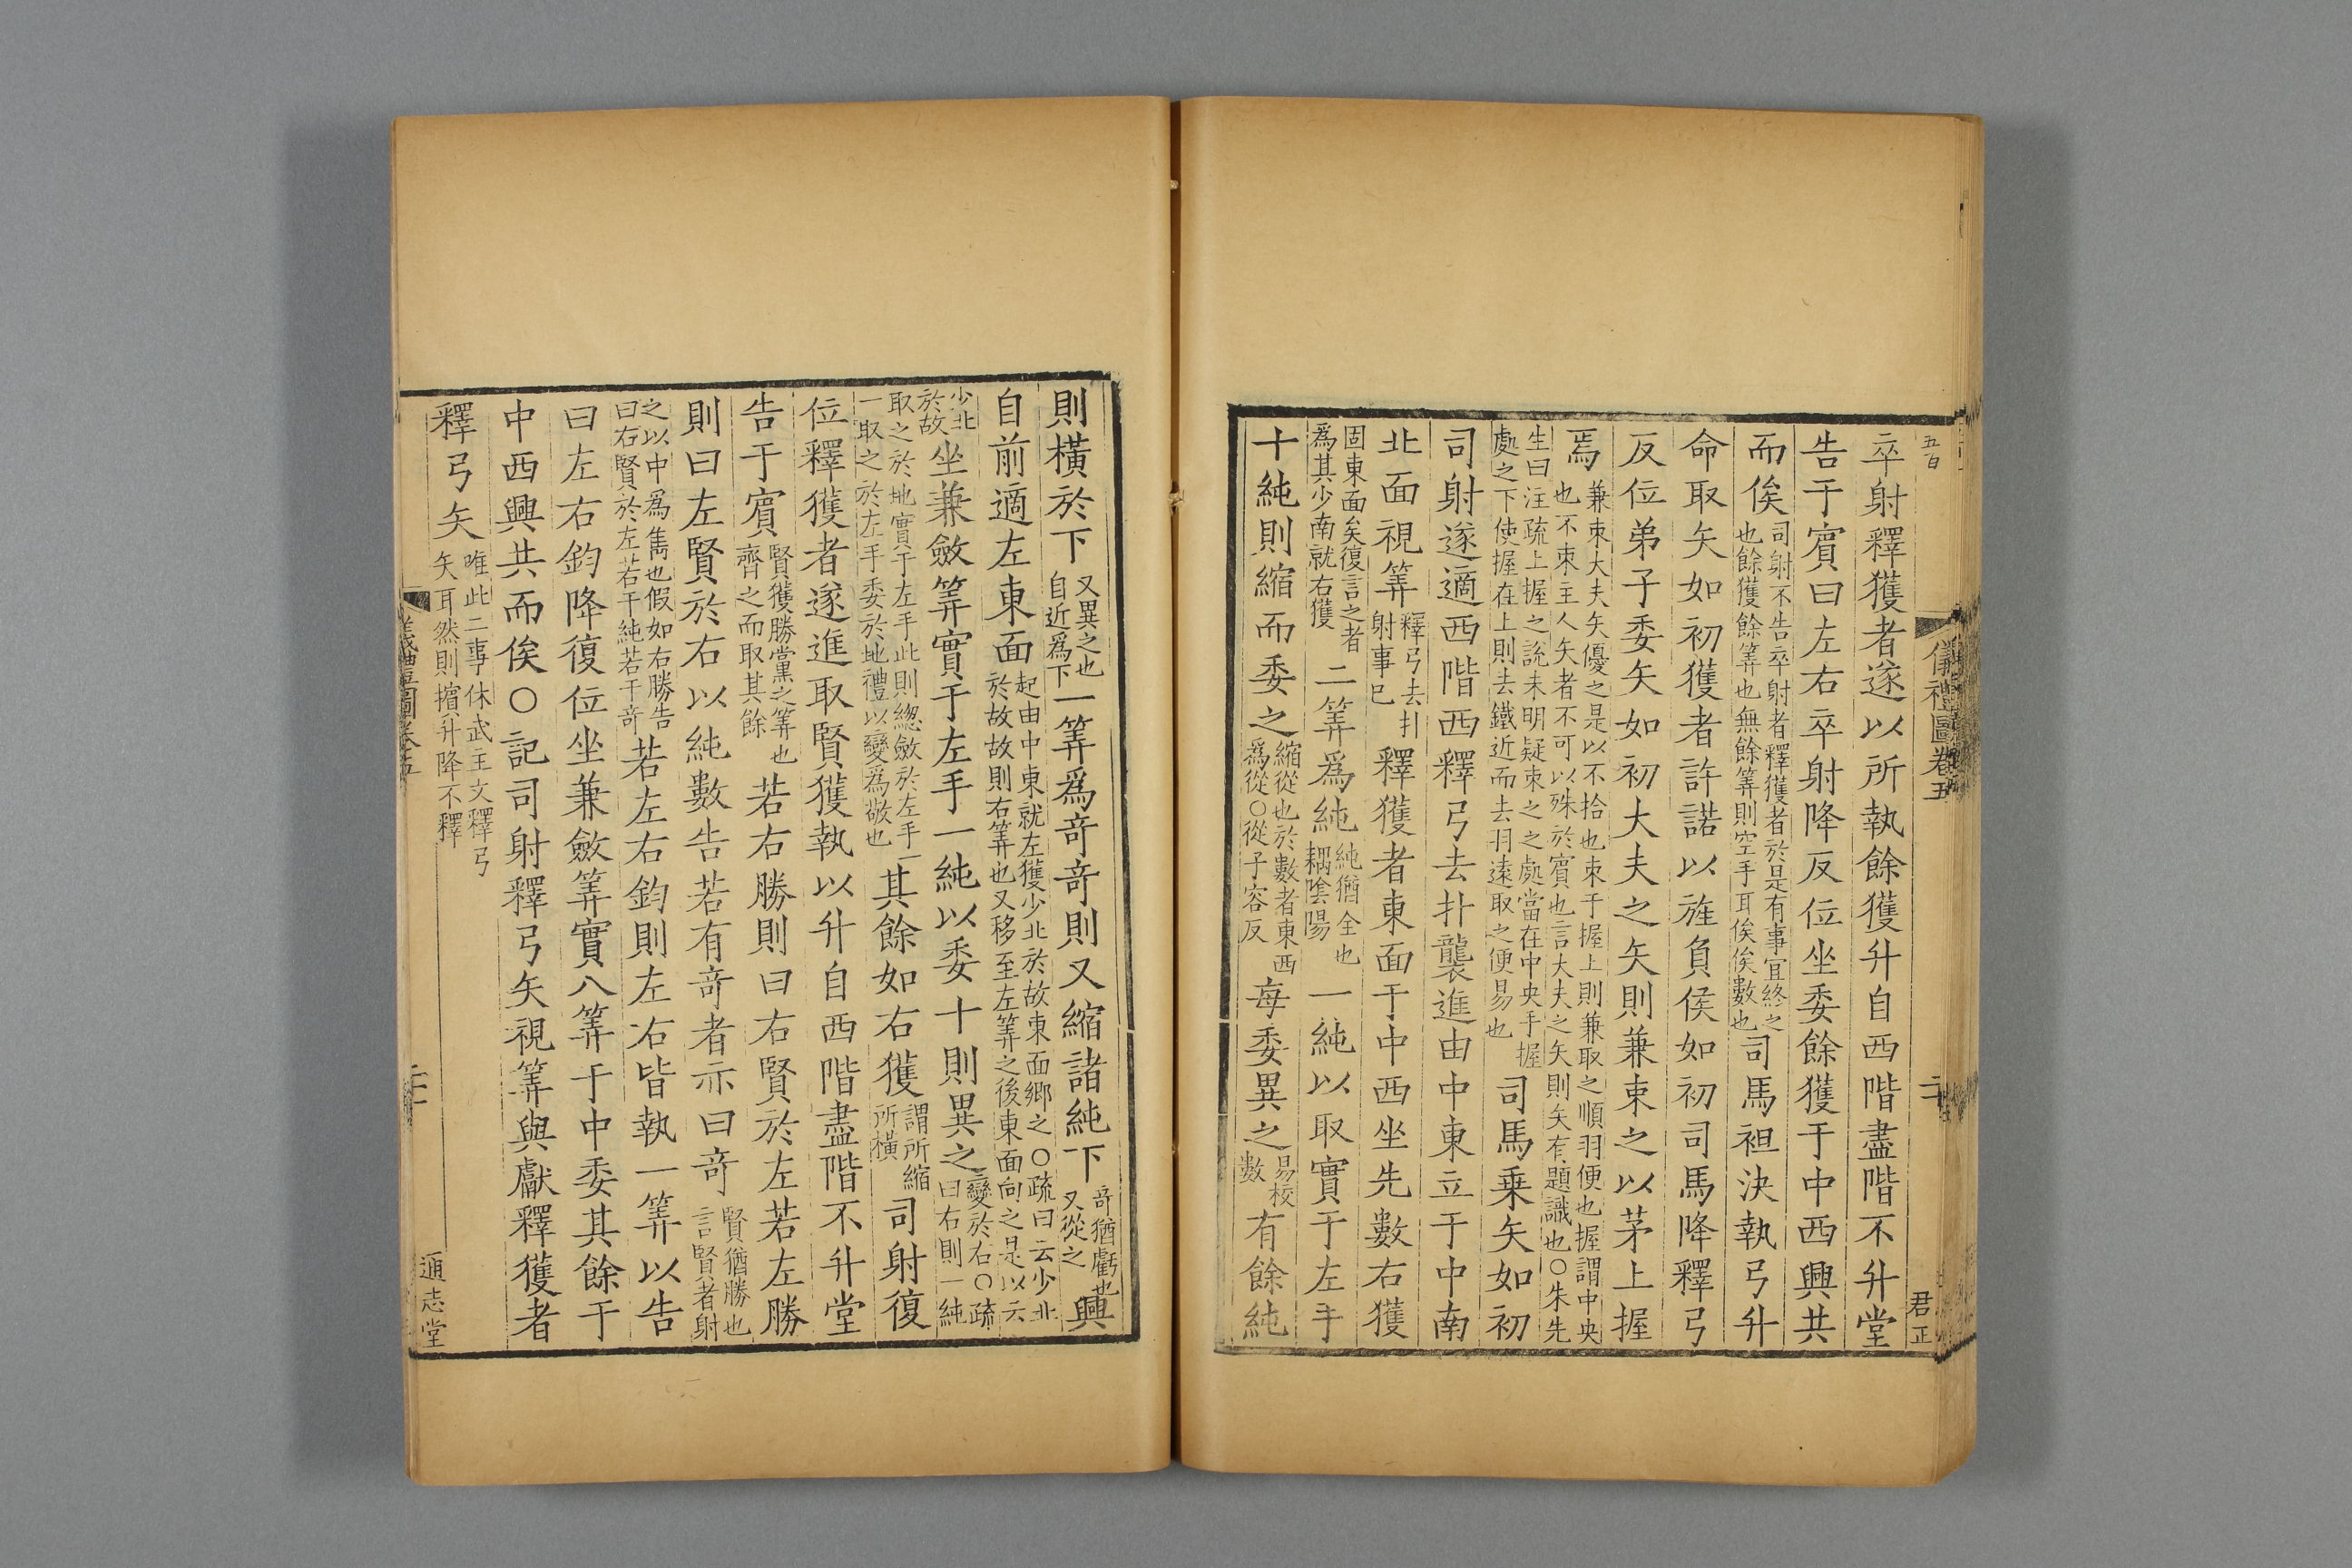 五百
儀禮圖卷五
二
君正
卒射釋獲者遂以所執餘獲升自西階盡階不升堂
告于賓曰左右卒射降反位坐委餘獲于中西興共
而俟司射不告卒射者釋獲者於是有事宜終之也餘獲餘筭也無餘筭則空手耳俟俟數也司馬袒決執弓升
命取矢如初獲者許諾以旌負侯如初司馬降釋弓
反位弟子委矢如初大夫之矢則兼束之以茅上握
焉兼束大夫矢優之是以不拾也束于握上則兼取之順羽便也握謂中央也不束主人矢者不可以殊於賓也言大夫之矢則矢有題識也○朱先
生曰注疏上握之說未明疑束之之處當在中央手握處之下使握在上則去鐵近而去羽遠取之便易也司馬乗矢如初
司射遂適西階西釋弓去扑襲進由中東立于中南
北面視筭釋弓去扑射事已釋獲者東面于中西坐先數右獲
固東面矣復言之者爲其少南就右獲二筭爲純純猶全也耦陰陽一純以取實于左手
十純則縮而委之縮從也於數者東西爲從○從子容反每委異之易校數有餘純
則橫於下又異之也自近爲下一筭爲奇奇則又縮諸純下奇猶虧也又從之興
自前適左東面起由中東就左獲少北於故東面鄉之○疏曰云少北於故故則右筭也又移至左筭之後東面向之是以云
少北於故坐兼斂筭實于左手一純以委十則異之變於右○疏曰右則一純
取之於地實于左手此則緫斂於左手一一取之於左手委於地禮以變爲敬也其餘如右獲謂所縮所橫司射復
位釋獲者遂進取賢獲執以升自西階盡階不升堂
告于賓賢獲勝黨之筭也齊之而取其餘若右勝則曰右賢於左若左勝
則曰左賢於右以純數告若有奇者亦曰奇賢猶勝也言賢者射
之以中爲雋也假如右勝告曰右賢於左若干純若干奇若左右鈞則左右皆執一筭以告
曰左右鈞降復位坐兼斂筭實八筭于中委其餘于
中西興共而俟○記司射釋弓矢視筭與獻釋獲者
釋弓矢唯此二事休武主文釋弓矢耳然則擯升降不釋
儀禮圖卷五
二
通志堂